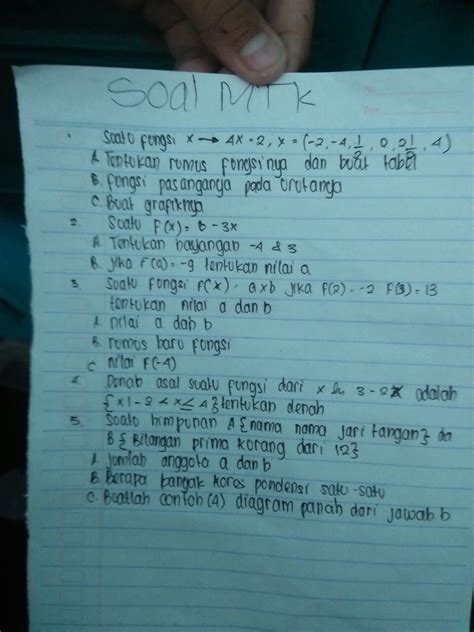 Soal MTK
1. Suatu fungsi x → 4x - 2, x = (-2, -4, 1/2, 0, 2 1/2, 4)
A. Tentukan rumus fungsinya dan buat tabel
B. Fungsi pasanganya pada urutanya
C. Buat grafiknya
2. Suatu F(x) = 6 - 3x
A. Tentukan bayangan -4 & 3
B. jika F(a) = -9 tentukan nilai a
3. Suatu fungsi F(x) = axb jika F(2) = -2 F(3) = 13
tentukan nilai a dan b
A. nilai a dan b
B. rumus baru fungsi
C nilai F(-4)
4. Derah asal suatu fungsi dari x 3 - 2x adalah
{x1 - 2 < x ≤ 4} tentukan derah
5. Suatu himpunan A {nama nama jari tangan} da
B { Bilangan prima kurang dari 12}
A. jumlah anggota a dan b
B. Berapa banyak koros pondensi satu-satu
C. Buatlah contoh (4) diagram panah dari jawab b